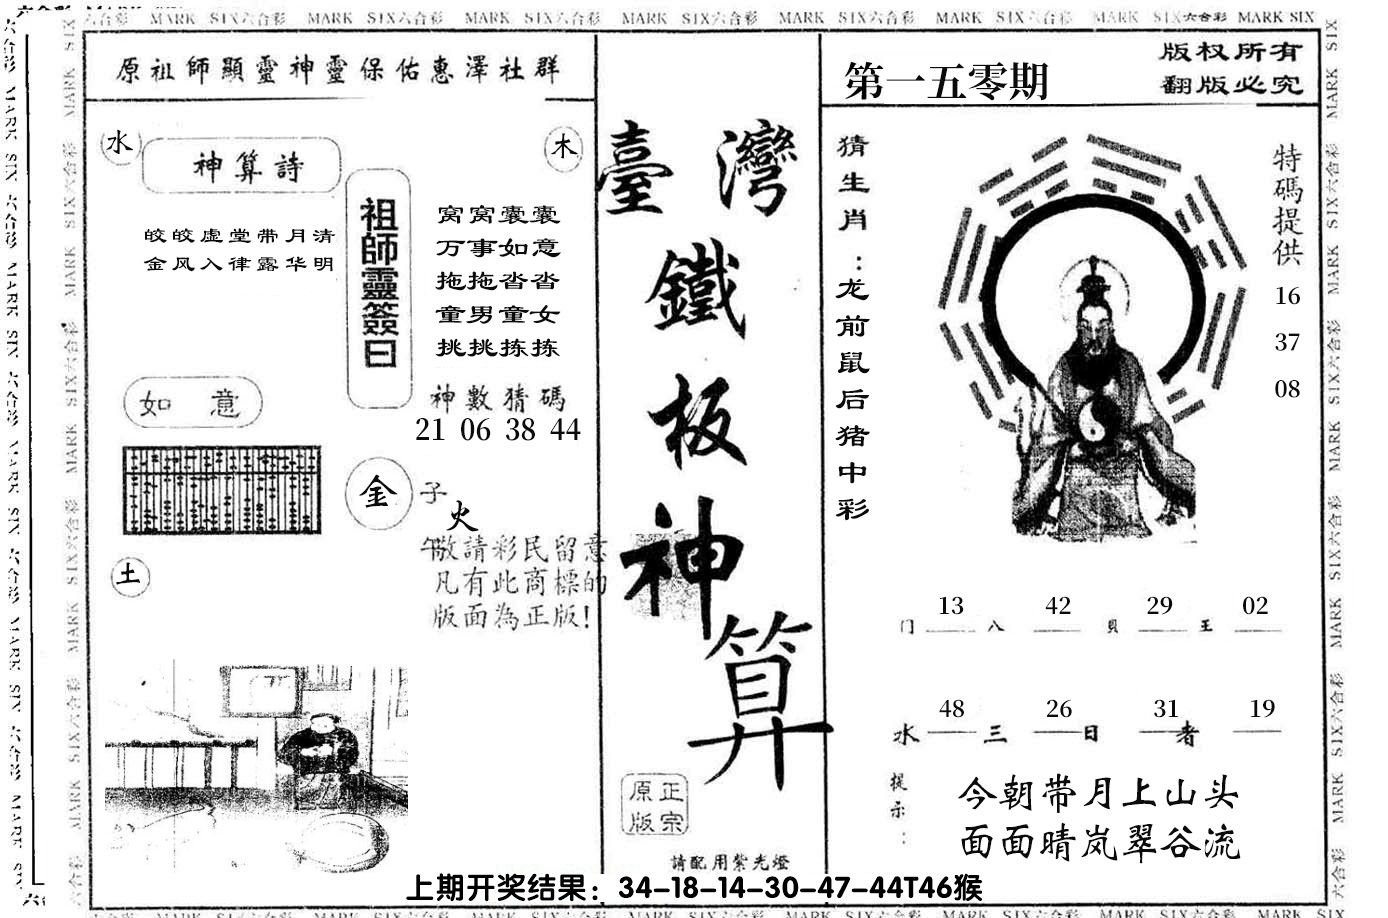 MARK SIX六合彩 MARK SIX六合彩 MARK SIX六合彩 MARK SIX六合彩 MARK SIX六合彩 MARK SIX六合彩 MARK SIX六合彩 MARK SIX
原祖師顯靈神靈保佑惠澤社群
水
神算詩
木
皎皎虚堂带月清
金风入律露华明
祖師靈簽曰
窝窝囊囊
万事如意
拖拖沓沓
童男童女
挑挑拣拣
神數猜碼
21 06 38 44
如意
金
子
火
午
敬請彩民留意
凡有此商標的
版面為正版!
土
臺灣
鐵
板
神
算
正宗
原版
請配用紫光燈
第一五零期
版权所有
翻版必究
猜生肖:龙前鼠后猪中彩
特碼提供
16
37
08
13 42 29 02
门 八 貝 王
48 26 31 19
水 三 日 者
提示:
今朝带月上山头
面面晴岚翠谷流
上期开奖结果：34-18-14-30-47-44T46猴